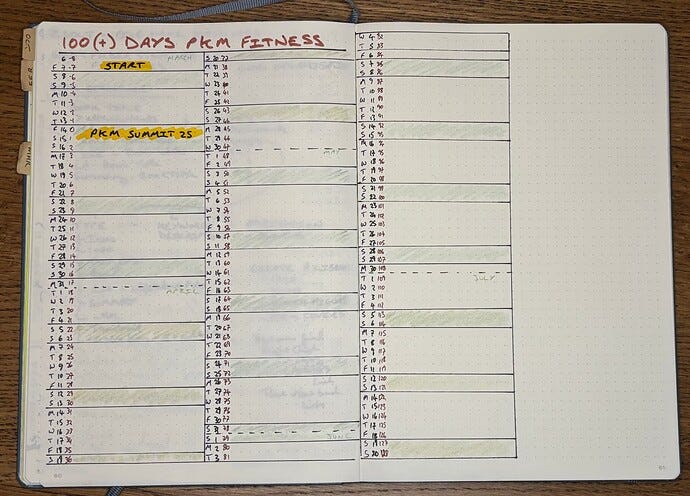 OCT
100(+) DAYS PKM FITNESS
6 -8 MARCH
F 7 -7 START
S 8 -6
S 9 -5
M 10 -4
T 11 -3
W 12 -2
T 13 -1
F 14 0 PKM SUMMIT 25
S 15 1
S 16 2
M 17 3
T 18 4
W 19 5
T 20 6
F 21 7
S 22 8
S 23 9
M 24 10
T 25 11
W 26 12
T 27 13
F 28 14
S 29 15
S 30 16
M 31 17
T 1 18 APRIL
W 2 19
T 3 20
F 4 21
S 5 22
S 6 23
M 7 24
T 8 25
W 9 26
T 10 27
F 11 28
S 12 29
S 13 30
M 14 31
T 15 32
W 16 33
T 17 34
F 18 35
S 19 36
60
S 20 37
M 21 38
T 22 39
W 23 40
T 24 41
F 25 42
S 26 43
S 27 44
M 28 45
T 29 46
W 30 47
T 1 48 MAY
F 2 49
S 3 50
S 4 51
M 5 52
T 6 53
W 7 54
T 8 55
F 9 56
S 10 57
S 11 58
M 12 59
T 13 60
W 14 61
T 15 62
F 16 63
S 17 64
S 18 65
M 19 66
T 20 67
W 21 68
T 22 69
F 23 70
S 24 71
S 25 72
M 26 73
T 27 74
W 28 75
T 29 76
F 30 77
S 31 78
S 1 79 JUNE
M 2 80
T 3 81
W 4 82
T 5 83
F 6 84
S 7 85
S 8 86
M 9 87
T 10 88
W 11 89
T 12 90
F 13 91
S 14 92
S 15 93
M 16 94
T 17 95
W 18 96
T 19 97
F 20 98
S 21 99
S 22 100
M 23 101
T 24 102
W 25 103
T 26 104
F 27 105
S 28 106
S 29 107
M 30 108
T 1 109 JULY
W 2 110
T 3 111
F 4 112
S 5 113
S 6 114
M 7 115
T 8 116
W 9 117
T 10 118
F 11 119
S 12 120
S 13 121
M 14 122
T 15 123
W 16 124
T 17 125
F 18 126
S 19 127
S 20 128
61